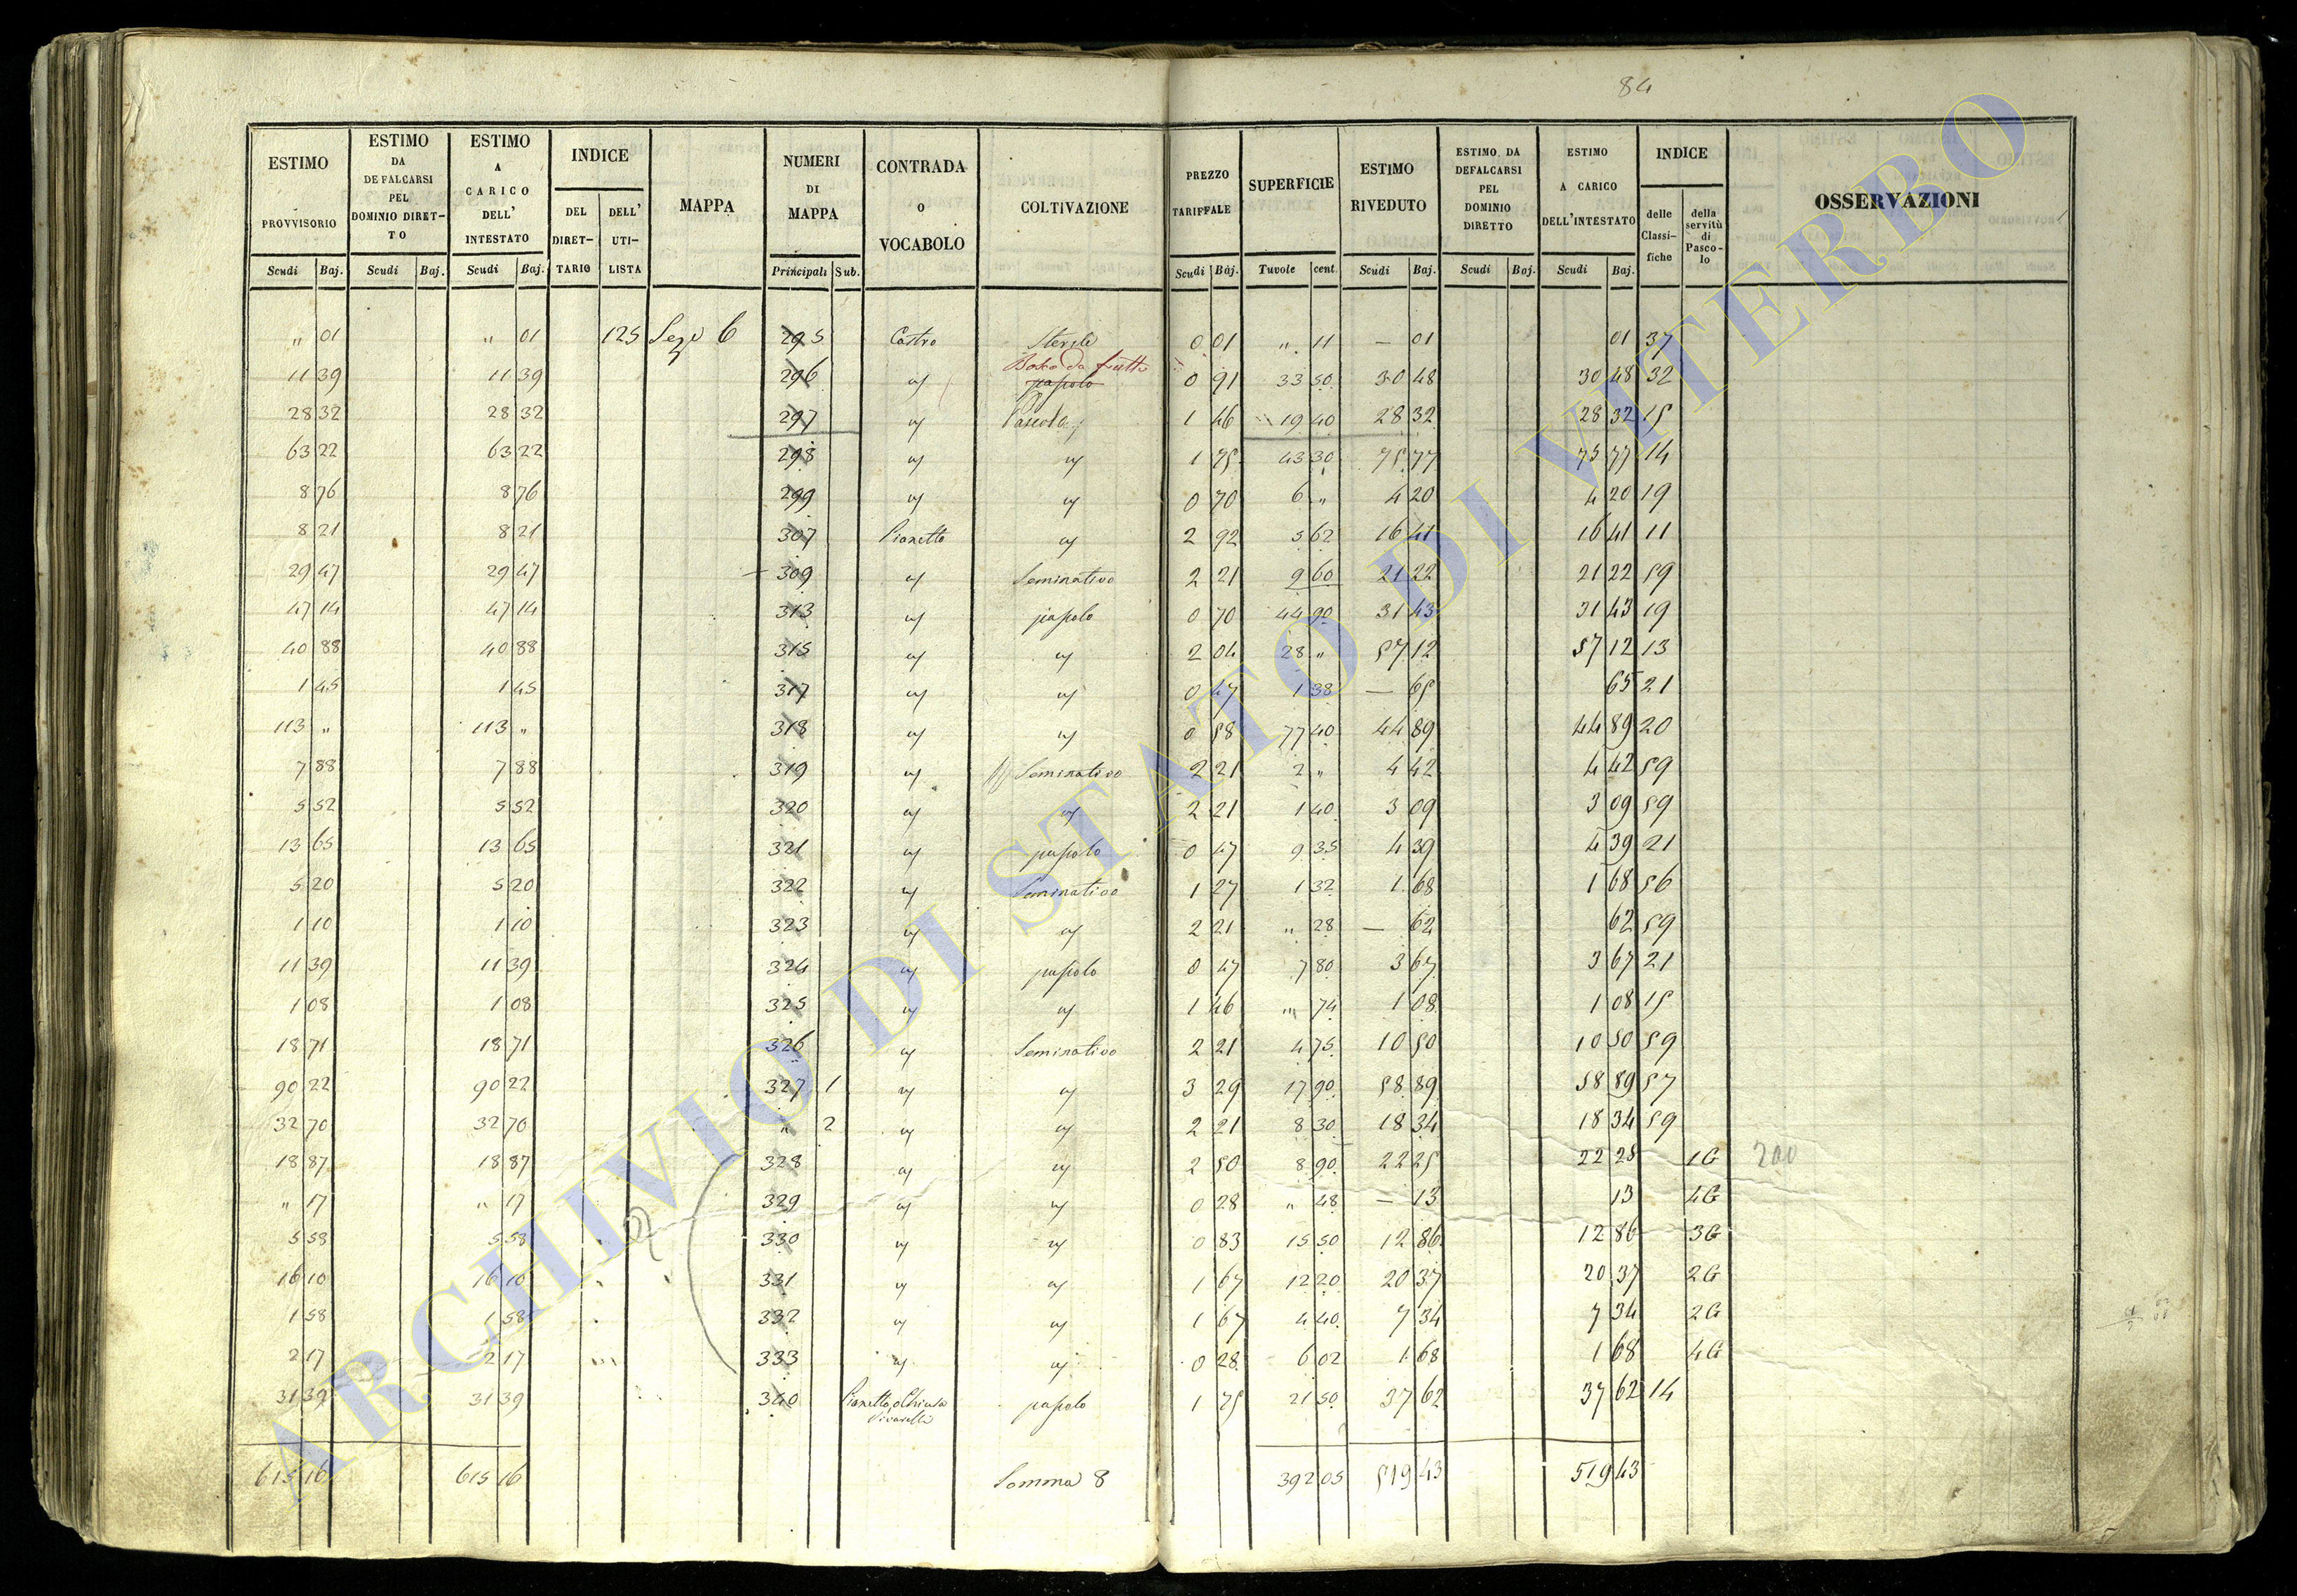 84
ESTIMO PROVVISORIO | ESTIMO DA DEFALCARSI PEL DOMINIO DIRETTO | ESTIMO A CARICO DELL'INTESTATO | INDICE DEL DIRETTARIO | DELL'UTILISTA | MAPPA | NUMERI DI MAPPA | CONTRADA O VOCABOLO | COLTIVAZIONE | PREZZO TARIFFALE | SUPERFICIE | ESTIMO RIVEDUTO | ESTIMO DA DEFALCARSI PEL DOMINIO DIRETTO | ESTIMO A CARICO DELL'INTESTATO | INDICE delle Classifiche | della servitù di Pascolo | OSSERVAZIONI
Scudi Baj. | Scudi Baj. | Scudi Baj. | Principali Sub. | Scudi Baj. | Tuvole cent. | Scudi Baj. | Scudi Baj. | Scudi Baj.
" 01 | " 01 | 125 | Sez. 6 | 295 | Castro | Sterile | 0 01 | " 11 | — 01 | 01 | 37
11 39 | 11 39 | 296 | " | Bosco da frutto pascolo | 0 91 | 33 50 | 30 48 | 30 48 | 32
28 32 | 28 32 | 297 | " | Pascolo | 1 46 | 19 40 | 28 32 | 28 32 | 15
63 22 | 63 22 | 298 | " | " | 1 75 | 43 30 | 75 77 | 75 77 | 14
8 76 | 8 76 | 299 | " | " | 0 70 | 6 " | 4 20 | 4 20 | 19
8 21 | 8 21 | 307 | Pianetto | " | 2 92 | 5 62 | 16 41 | 16 41 | 11
29 47 | 29 47 | 309 | " | Seminativo | 2 21 | 9 60 | 21 22 | 21 22 | 59
47 14 | 47 14 | 313 | " | pascolo | 0 70 | 44 90 | 31 43 | 31 43 | 19
40 88 | 40 88 | 315 | " | " | 2 04 | 28 " | 57 12 | 57 12 | 13
1 45 | 1 45 | 317 | " | " | 0 47 | 1 38 | — 65 | 65 | 21
113 " | 113 " | 318 | " | " | 0 58 | 77 40 | 44 89 | 44 89 | 20
7 88 | 7 88 | 319 | " | Seminativo | 2 21 | 2 " | 4 42 | 4 42 | 59
5 52 | 5 52 | 320 | " | " | 2 21 | 1 40 | 3 09 | 3 09 | 59
13 65 | 13 65 | 321 | " | pascolo | 0 47 | 9 35 | 4 39 | 4 39 | 21
5 20 | 5 20 | 322 | " | Seminativo | 1 27 | 1 32 | 1 68 | 1 68 | 56
1 10 | 1 10 | 323 | " | " | 2 21 | " 28 | — 62 | 62 | 59
11 39 | 11 39 | 324 | " | pascolo | 0 47 | 7 80 | 3 67 | 3 67 | 21
1 08 | 1 08 | 325 | " | " | 1 46 | " 74 | 1 08 | 1 08 | 15
18 71 | 18 71 | 326 | " | Seminativo | 2 21 | 4 75 | 10 50 | 10 50 | 59
90 22 | 90 22 | 327 1 | " | " | 3 29 | 17 90 | 58 89 | 58 89 | 57
32 70 | 32 70 | " 2 | " | " | 2 21 | 8 30 | 18 34 | 18 34 | 59
18 87 | 18 87 | 328 | " | " | 2 50 | 8 90 | 22 25 | 22 25 | 1G | 200
" 17 | " 17 | 329 | " | " | 0 28 | " 48 | — 13 | 13 | 4G
5 58 | 5 58 | 330 | " | " | 0 83 | 15 50 | 12 86 | 12 86 | 3G
16 10 | 16 10 | 331 | " | " | 1 67 | 12 20 | 20 37 | 20 37 | 2G
1 58 | 1 58 | 332 | " | " | 1 67 | 4 40 | 7 34 | 7 34 | 2G
2 17 | 2 17 | 333 | " | " | 0 28 | 6 02 | 1 68 | 1 68 | 4G
31 39 | 31 39 | 340 | Pianetto, o Chiusa | pascolo | 1 75 | 21 50 | 37 62 | 37 62 | 14
615 16 | 615 16 | Somma 8 | 392 05 | 519 43 | 519 43
ARCHIVIO DI STATO DI VITERBO